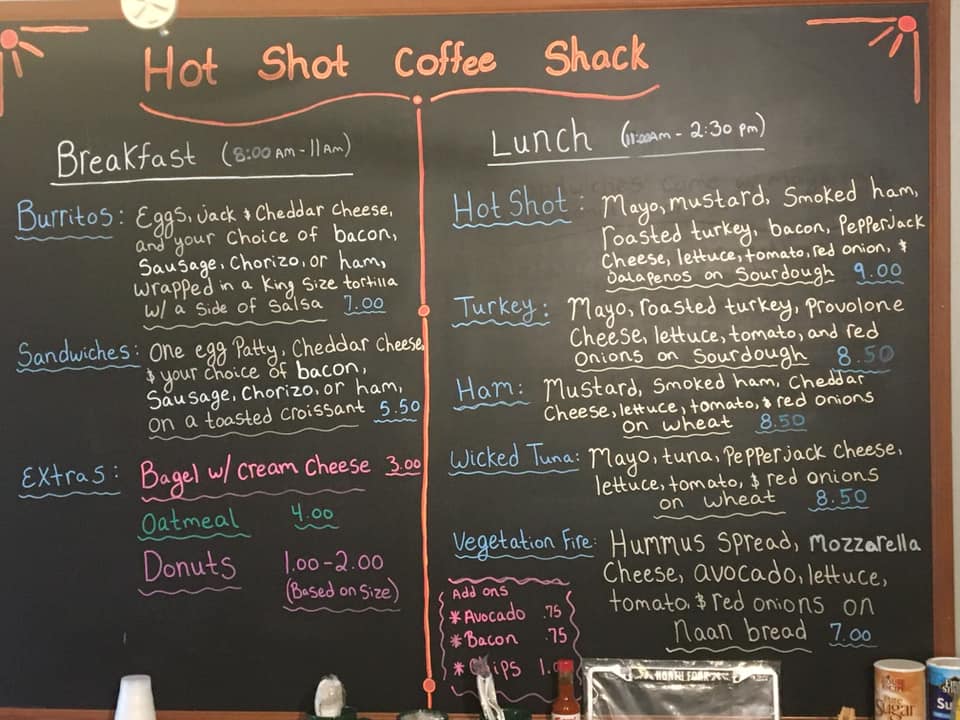 Hot Shot Coffee Shack
Breakfast (8:00 AM - 11 AM)
Burritos: Eggs, Jack & Cheddar Cheese,
and your Choice of bacon,
Sausage, Chorizo, or ham,
wrapped in a King Size tortilla
w/ a side of Salsa 7.00
Sandwiches: One egg Patty, Cheddar Cheese
& your choice of bacon,
Sausage, Chorizo, or ham,
on a toasted croissant 5.50
Extras: Bagel w/ cream cheese 3.00
Oatmeal 4.00
Donuts 1.00-2.00
(Based on Size)
Lunch (11:00AM - 2:30 pm)
Hot Shot: Mayo, mustard, Smoked ham,
roasted turkey, bacon, Pepperjack
Cheese, lettuce, tomato, red onion, &
Jalapenos on Sourdough 9.00
Turkey: Mayo, roasted turkey, Provolone
Cheese, lettuce, tomato, and red
onions on Sourdough 8.50
Ham: Mustard, Smoked ham, Cheddar
Cheese, lettuce, tomato, & red onions
on wheat 8.50
Wicked Tuna: Mayo, tuna, Pepperjack Cheese,
lettuce, tomato, & red onions
on wheat 8.50
Vegetation Fire: Hummus Spread, Mozzarella
Cheese, avocado, lettuce,
tomato, & red onions on
Naan bread 7.00
Add ons
*Avocado .75
*Bacon .75
*Chips
NORTH FORK
Sugar